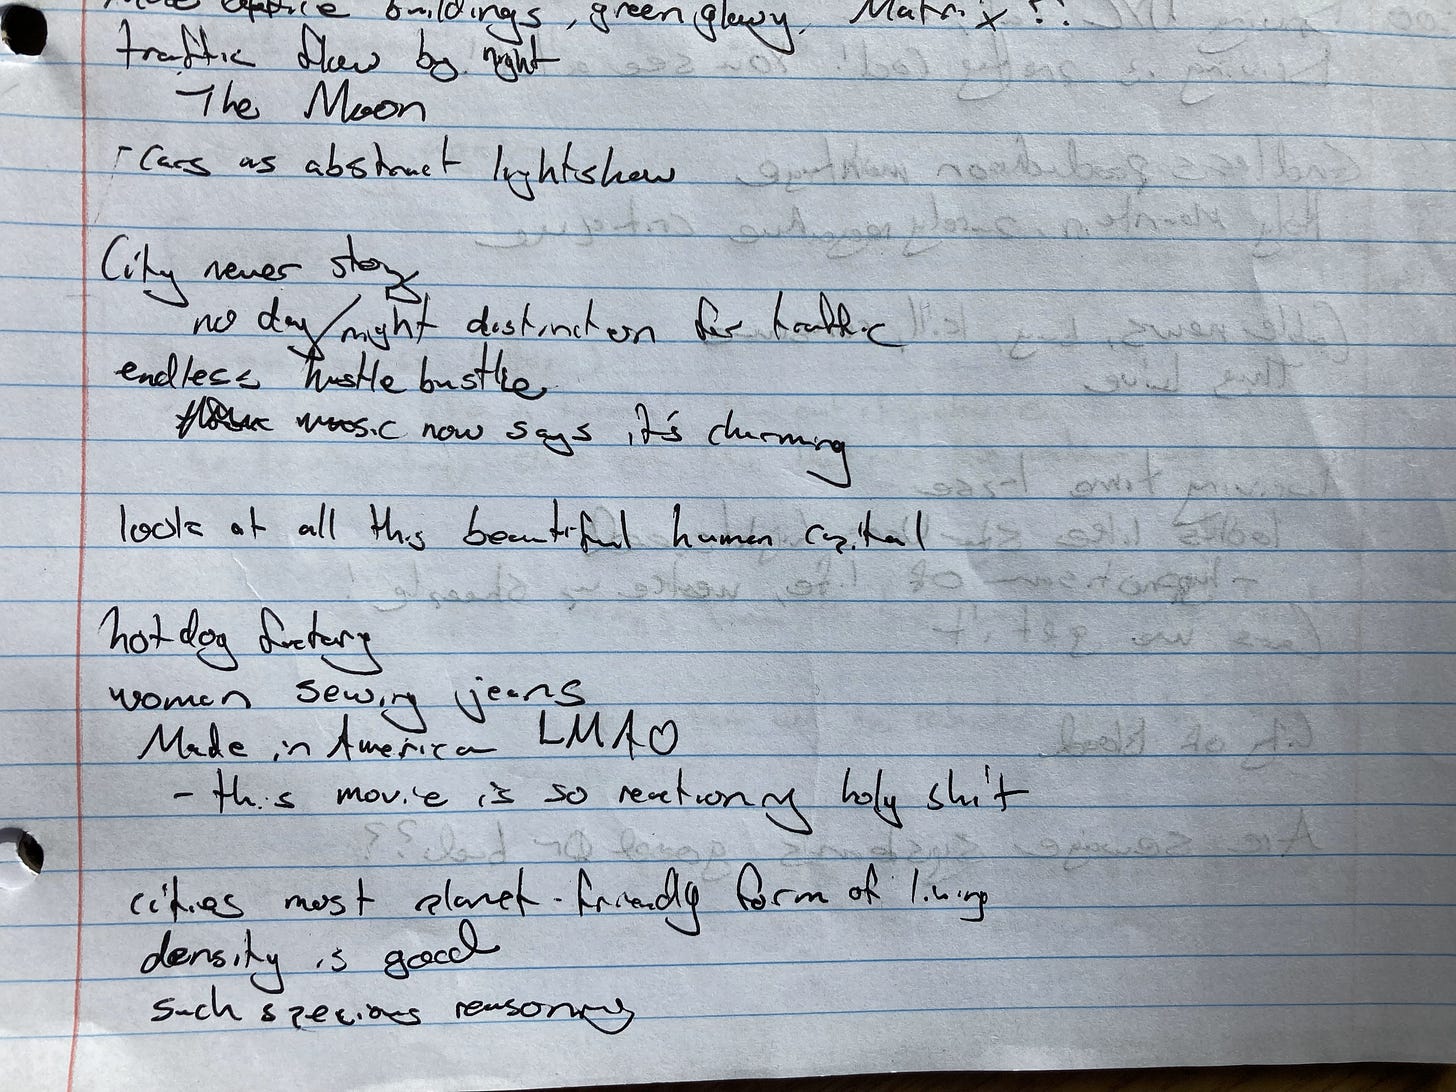 buildings, green glowy, Matrix??
traffic flow by night
The Moon
Cars as abstract lightshow
City never stops
no day/night distinction for traffic
endless hustle bustle
music now says it's charming
look at all this beautiful human capital
hot dog factory
women sewing jeans
Made in America LMAO
- this movie is so reactionary holy shit
cities most planet-friendly form of living
density is good
such specious reasoning